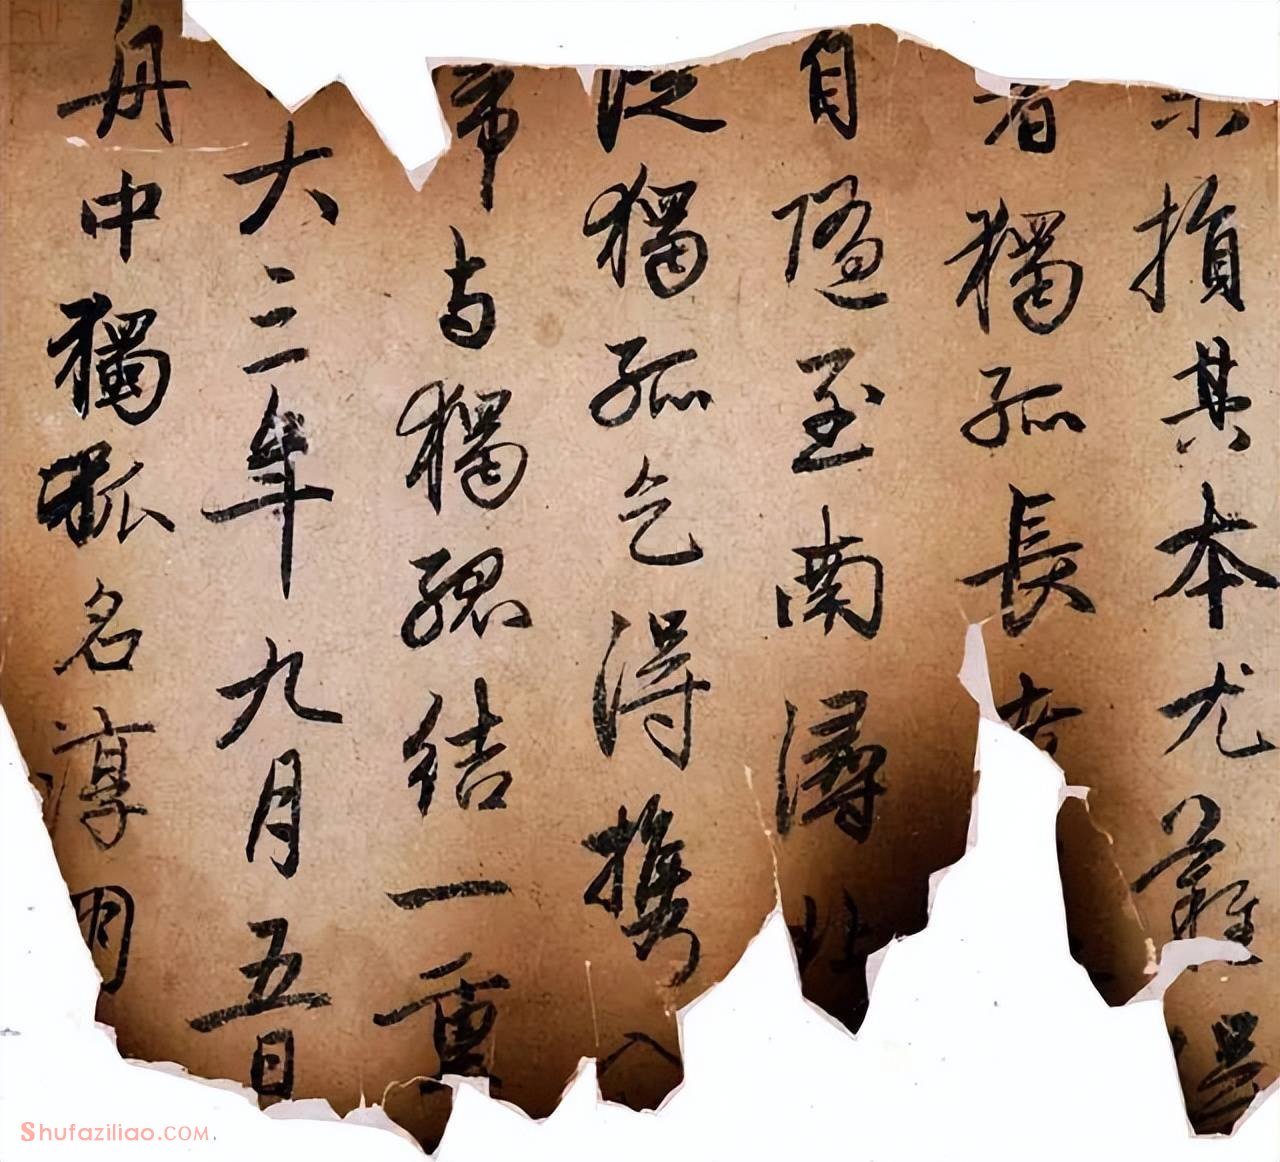 損其本尤難
者獨孤長
自隨至南潯北
從獨孤乞得攜入
与獨孤結一重
大三年九月五日
舟中獨孤名淳朋
Shufaziliao.COM.